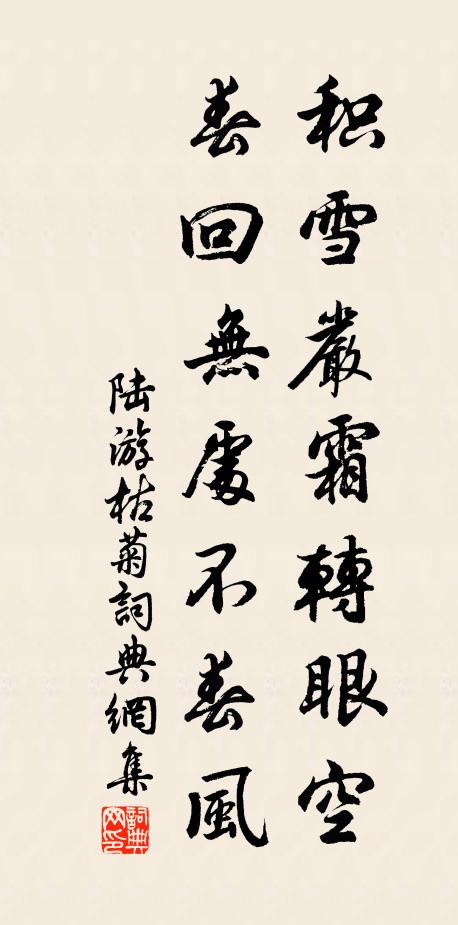 积雪嚴霜轉眼空
春回無處不春風
陆游枯菊詞典網集
詞典网印